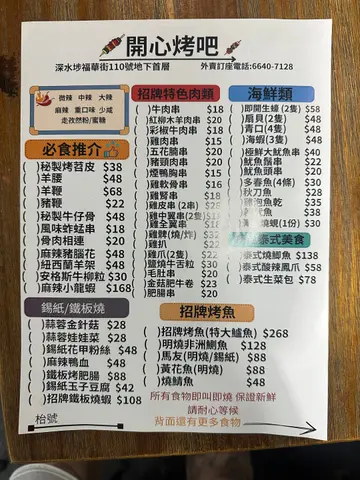 開心烤吧
深水埗福華街110號地下首層 外賣訂座電話:6640-7128
微辣 中辣 大辣
麻辣 重口味 少咸
走孜然粉/蜜糖
必食推介
( )秘製烤苕皮 $38
( )羊腰 $48
( )羊鞭 $68
( )豬鞭 $22
( )秘製牛仔骨 $48
( )風味蚱蜢串 $18
( )骨肉相連 $20
( )麻辣豬腦花 $48
( )紐西蘭羊架 $48
( )安格斯牛柳粒 $30
( )麻辣小龍蝦 $168
錫紙/鐵板燒
( )蒜蓉金針菇 $28
( )蒜蓉娃娃菜 $28
( )錫紙花甲粉絲 $48
( )麻辣鴨血 $48
( )鐵板烤肥腸 $88
( )錫紙玉子豆腐 $42
( )招牌鐵板燒蝦 $108
枱號
招牌特色肉類
( )牛肉串 $18
( )紅柳木羊肉串 $20
( )彩椒牛肉串 $18
( )雞肉串 $15
( )五花腩串 $20
( )豬頸肉串 $20
( )煙鴨胸串 $15
( )雞軟骨串 $16
( )雞腎串 $18
( )雞皮串 $22
( )雞中翼串(2隻) $18
( )雞全翼串 $18
( )雞髀(燒/炸) $32
( )雞扒 $22
( )雞爪(2隻) $22
( )鹽燒牛舌粒 $30
( )毛肚串 $20
( )金菇肥牛卷 $20
( )肥腸串 $20
海鮮類
( )即開生蠔 (2隻) $58
( )扇貝(2隻) $48
( )青口(4隻) $48
( )海蝦(3隻) $48
( )極鮮大魷魚串 $40
( )魷魚鬚串 $22
( )魷魚頭串 $22
( )多春魚(4條) $30
( )秋刀魚 $28
( )雞泡魚乾 $35
$38
(1份) $30
泰式美食
泰式燒鯽魚 $138
泰式酸辣鳳爪 $58
泰式生菜包 $78
招牌烤魚
( )招牌烤魚(特大鱸魚) $268
( )明燒非洲鯽魚 $128
( )馬友(明燒/錫紙) $88
( )黃花魚(明燒) $88
( )燒鯖魚 $48
所有食物即叫即燒 保證新鮮
請耐心等候
背面還有更多食物